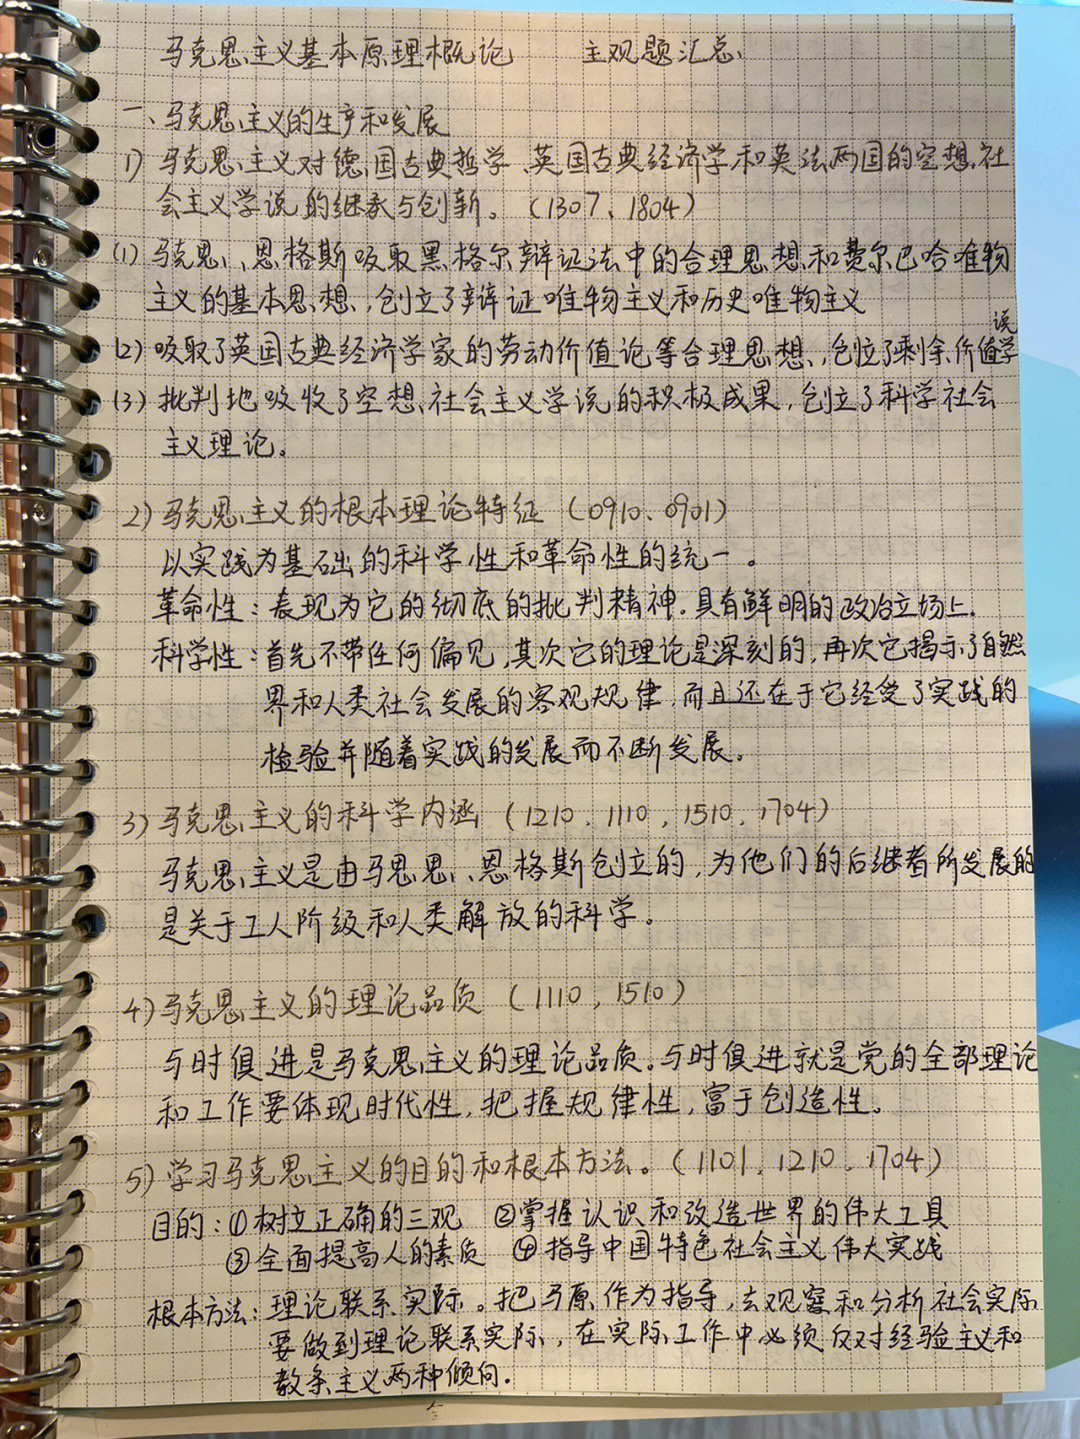 马克思主义基本原理概论 主观题汇总
一、马克思主义的生产和发展
1) 马克思主义对德国古典哲学、英国古典经济学和英法两国的空想社
会主义学说的继承与创新。(1307、1804)
(1) 马克思、恩格斯吸取黑格尔辩证法中的合理思想和费尔巴哈唯物
主义的基本思想,创立了辩证唯物主义和历史唯物主义
(2) 吸取了英国古典经济学家的劳动价值论等合理思想,创立了剩余价值学说
(3) 批判地吸收了空想社会主义学说的积极成果,创立了科学社会
主义理论。
2) 马克思主义的根本理论特征 (0910、0901)
以实践为基础的科学性和革命性的统一。
革命性:表现为它的彻底的批判精神.具有鲜明的政治立场上.
科学性:首先不带任何偏见,其次它的理论是深刻的,再次它揭示了自然
界和人类社会发展的客观规律,而且还在于它经受了实践的
检验并随着实践的发展而不断发展。
3) 马克思主义的科学内涵 (1210、1110,1510、1704)
马克思主义是由马思思、恩格斯创立的,为他们的后继者所发展的
是关于工人阶级和人类解放的科学。
4) 马克思主义的理论品质 (1110,1510)
与时俱进是马克思主义的理论品质。与时俱进就是党的全部理论
和工作要体现时代性,把握规律性,富于创造性。
5) 学习马克思主义的目的和根本方法。(1101、1210、1704)
目的:①树立正确的三观 ②掌握认识和改造世界的伟大工具
③全面提高人的素质 ④指导中国特色社会主义伟大实践
根本方法:理论联系实际。把马原作为指导,去观察和分析社会实际
要做到理论联系实际,在实际工作中必须反对经验主义和
教条主义两种倾向.